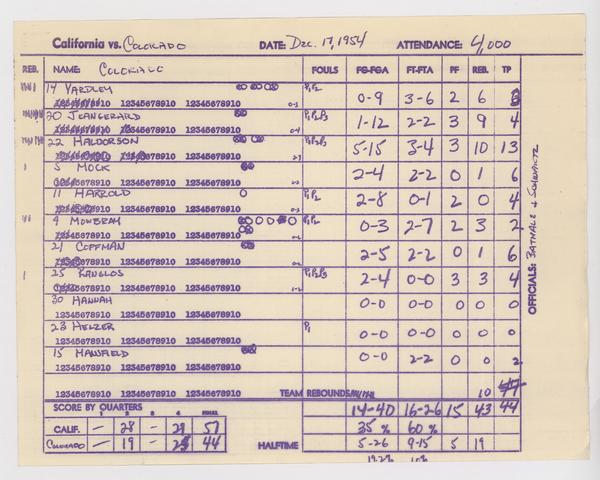 California vs. COLORADO DATE: DEC. 17, 1954 ATTENDANCE: 4,000
REB. NAME: COLORADO FOULS FG-FGA FT-FTA PF REB. TP
14 YARDLEY P1P2 0-9 3-6 2 6 3
12345678910 12345678910 0-3
20 JEANGERARD P1P2P3 1-12 2-2 3 9 4
12345678910 12345678910 0-4
22 HALDORSON P1P2P3 5-15 3-4 3 10 13
12345678910 12345678910
5 MOCK 2-4 2-2 0 1 6
12345678910 12345678910
11 HARROLD P1P2 2-8 0-1 2 0 4
12345678910 12345678910
4 MOWBRAY P1P2 0-3 2-7 2 3 2
12345678910 12345678910
21 COFFMAN 2-5 2-2 0 1 6
12345678910 12345678910
25 RANGLOS P1P2P3 2-4 0-0 3 3 4
12345678910 12345678910 1-2
30 HANNAH 0-0 0-0 0 0 0
12345678910 12345678910
23 HELZER P1 0-0 0-0 0 0 0
12345678910 12345678910
15 MANSFIELD 0-0 2-2 0 0 2
12345678910 12345678910
12345678910 12345678910 TEAM REBOUNDS 10
14-40 16-26 15 43 44
SCORE BY QUARTERS 1 2 3 4 FINAL
CALIF. — 28 — 29 57
COLORADO — 19 — 25 44
35% 60%
HALFTIME 5-26 9-15 5 19
19.2%
OFFICIALS: &